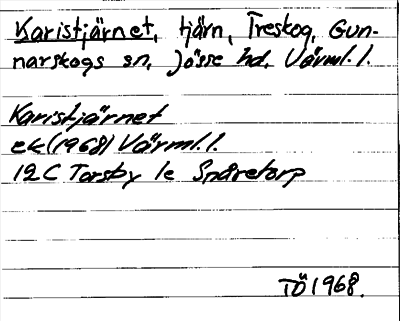 Karistjärnet, tjärn, Treskog, Gun-
narskogs sn, Jösse hd, Värml. l.
Karistjärnet
ek (1968) Värml. l.
12C Torsby 1e Snåretorp
TÖ 1968.